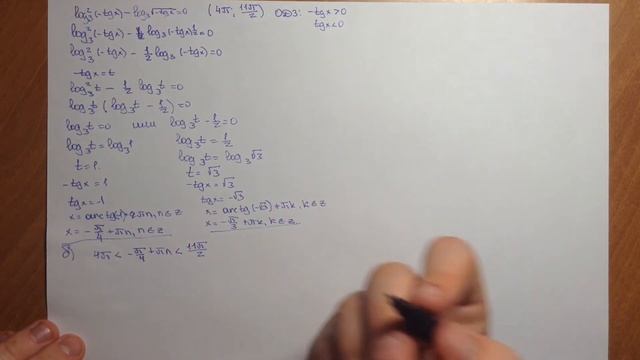 log₃²(-tgx) - log₃√-tgx = 0 (4π, 11π/2) ОДЗ: -tgx>0
tgx<0
log₃²(-tgx) - log₃(-tgx)^½ = 0
log₃²(-tgx) - ½ log₃(-tgx) = 0
-tgx = t
log₃²t - ½ log₃t = 0
log₃t (log₃t - ½) = 0
log₃t = 0 или log₃t - ½ = 0
log₃t = log₃1 log₃t = ½
log₃t = log₃√3
t = 1. t = √3
-tgx = 1 -tgx = √3
tgx = -1 tgx = -√3
x = arctg(-1) + πn, n∈z x = arctg(-√3) + πk, k∈z
x = -π/4 + πn, n∈z x = -π/3 + πk, k∈z
б) 4π < -π/4 + πn < 11π/2